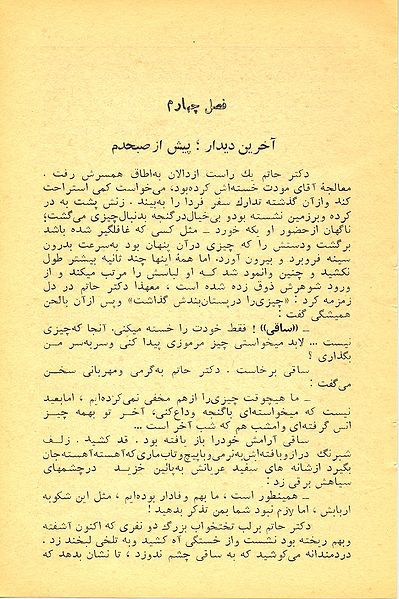 فصل چهارم
آخرین دیدار ؛ پیش از صبحدم
دکتر حاتم یك راست ازدالان به‌اطاق همسرش رفت .
معالجهٔ آقای مودت خسته‌اش کرده‌بود، می‌خواست کمی استراحت
کند وازآن گذشته تدارك سفر فردا را به‌بیند . زنش پشت به در
کرده وبرزمین نشسته بودو بی‌خیال‌درگنجه بدنبال‌چیزی می‌گشت؛
ناگهان ازحضور او یکه خورد ـ مثل کسی که غافلگیر شده باشد
برگشت ودستش را که چیزی درآن پنهان بود به‌سرعت بدرون
سینه فروبرد و بیرون آورد. اما همهٔ اینها چند ثانیه بیشتر طول
نکشید و چنین وانمود شد کـه او لباسش را مرتب میکند و از
ورود شوهرش ذوق زده شده است ، معهذا دکتر حاتم در دل
زمزمه کرد : «چیزی‌را درپستان‌بندش گذاشت» وپس ازآن بالحن
همیشگی گفت :
ـ «ساقی» ! فقط خودت را خسته میکنی. آنجا که‌چیزی
نیست ... لابد میخواستی چیز مرموزی پیدا کنی وسربه‌سر من
بگذاری ؟
ساقی برخاست . دکتر حاتم به‌گرمی ومهربانی سخـن
می‌گفت :
ـ ما هیچوقت چیزی‌را ازهم مخفی نمی‌کرده‌ایم ، امابعید
نیست که میخواسته‌ای باگنجه وداع‌کنی، آخـر تو بهمه چیـز
انس گرفته‌ای وامشب هم که شب آخر است ...
ساقی آرامش خودرا باز یافته بود . قد کشید . زلـف
شبرنگ درازوبافته‌اش به‌نرمی وباپیچ‌وتاب‌ماری‌که‌آهسته‌آهسته‌جان
بگیرد ازشانه های سفید عریانش به‌پائین خزیـد درچشمهای
سیاهش برقی زد :
ـ همینطور است ، ما بهم وفادار بوده‌ایم ، مثل این شکوبه
اربابش ، اما لازم نبود شما بمن تذکر بدهید !
دکتر حاتم برلب تختخواب بزرگ دو نفری که اکنون آشفته
وبهم ریخته بود نشست واز خستگی آه کشید وبه تلخی لبخند زد .
دردمندانه می‌کوشید که به ساقی چشم ندوزد ، تا نشان بدهد که